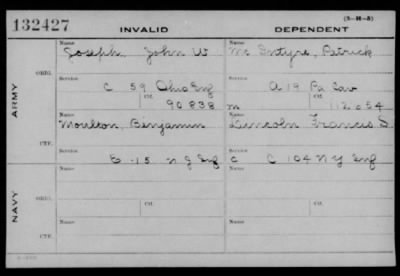 132427 INVALID DEPENDENT (3-H-5)
Name Name
Joseph John W Mc Intyre, Patrick
ORIG. Service Service
C 59 Ohio Inf A 19 Pa Cav
Ctf. Ctf.
90838 m 112054
ARMY
Name Name
Moulton, Binjamin Lincoln Francis S.
CTF. Service Service
E 15 N J Inf C C 104 N Y Inf
NAVY
Name Name
ORIG. Service Ctf. Service Ctf.
Name Name
CTF. Service Service